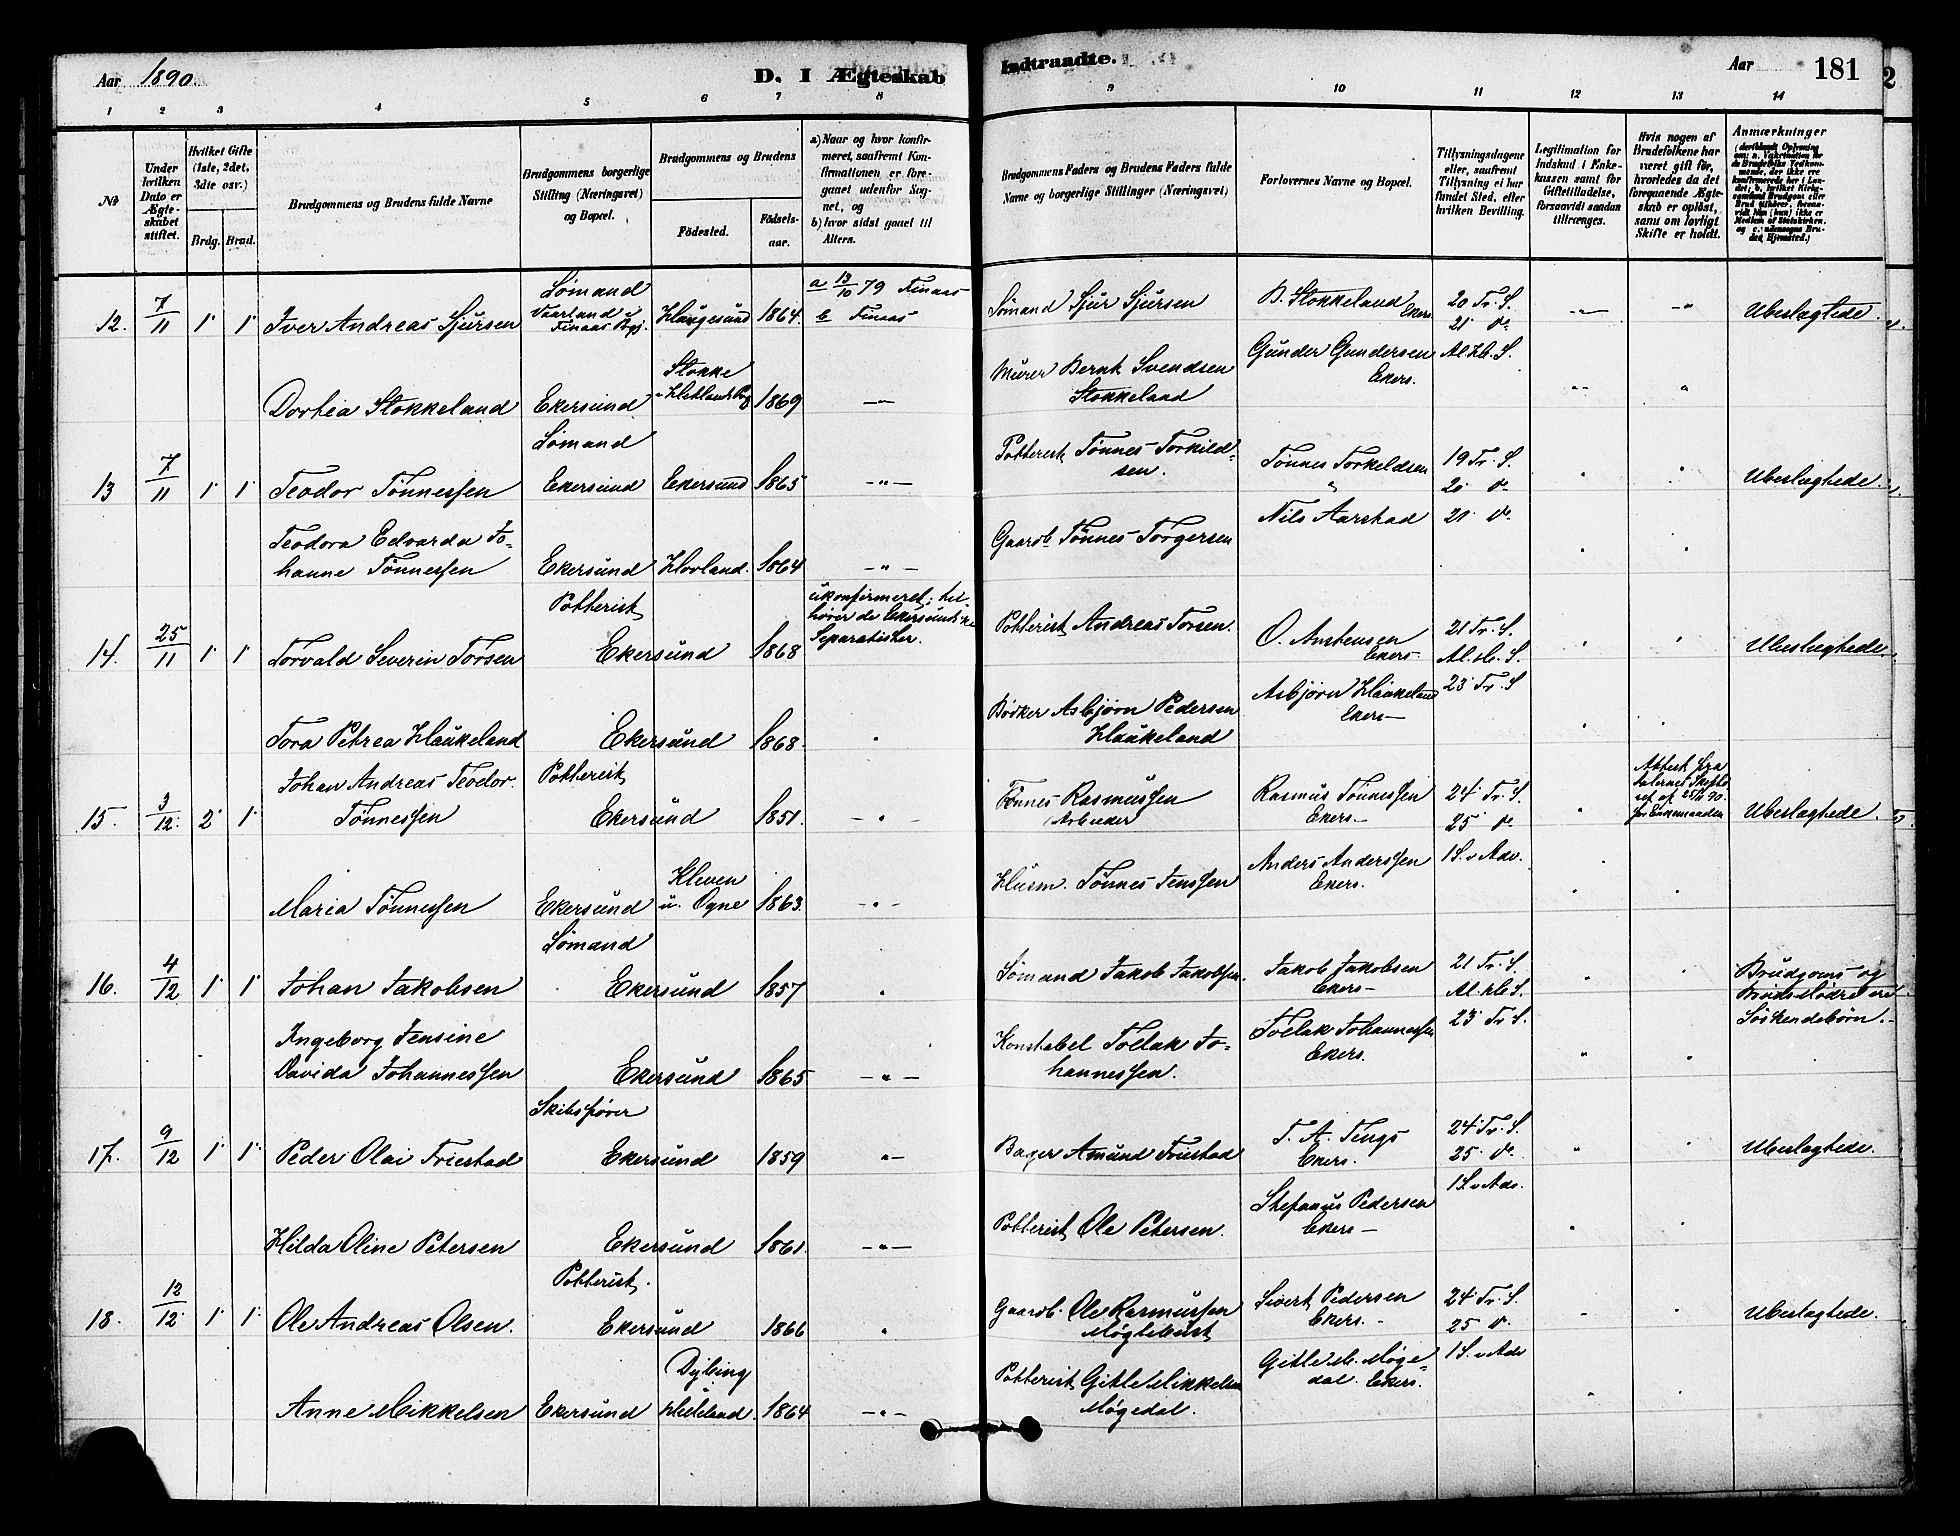 Aar 1890.
D. I Ægteskab
Indtraadte.
Aar
181
2
1 2 3 4 5 6 7 8 9 10 11 12 13 14
No
Under hvilken Dato er Ægteskabet stiftet.
Hvilket Gifte (1ste, 2det, 3die osv.)
Brdg. Brud.
Brudgommens og Brudens fulde Navne
Brudgommens borgerlige Stilling (Næringsvei) og Bopæl.
Brudgommens og Brudens
Fødested.
Fødselsaar.
a) Naar og hvor konfirmeret, saafremt Konfirmationen er foregaaet udenfor Sognet, og
b) hvor sidst gaaet til Alters.
Brudgommens Faders og Brudens Faders fulde Navne og borgerlige Stillinger (Næringsvei)
Forlovernes Navne og Bopæl.
Tillysningsdagene eller, saafremt Tillysning ei har fundet Sted, efter hvilken Bevilling.
Legitimation for Indskud i Enkekassen samt for Giftetilladelse, forsaavidt saadan tiltrænges.
Hvis nogen af Brudefolkene har været gift før, hvorledes da det foregaaende Ægteskab er opløst, samt om lovligt Skifte er holdt.
Anmærkninger
12. 7/11 1 1 Iver Andreas Sjursen
Sømand
Vaarland i Finaas Pgj.
Haugesund 1864.
a 13/10 79 Finaas
b Finaas
Sømand Sjur Sjursen
B. Stokkeland Ekers.
20 Tr. S.
21 do
Ubeslægtede.
Dorthea Stokkeland Ekersund
Stokke
i Hetlands Pg 1869
Murer Bernt Svendsen
Stokkeland
Gunder Gundersen
Ekers.
Al. H. S.
13 7/11 1 1 Teodor Tønnessen
Sømand
Ekersund Ekersund 1865
Potterist Tønnes Torkildsen.
Tønnes Torkeldsen
19 Tr. S.
20 do
Ubeslægtede.
Teodora Edvarda Johanne Tønnessen
Ekersund Hovland. 1864
Gaardb. Tønnes Torgersen
Nils Aarstad
21 do
14. 25/11 1 1 Torvald Severin Torsen
Potterist
Ekersund 1868
ukonfirmeret; tilhører de Ekersundske
Separatister.
Potterist Andreas Torsen.
O. Austensen
Ekers
21 Tr. S.
Al. H. S.
Ubeslægtede.
Tora Petrea Haukeland
Ekersund 1868.
Bødker Asbjørn Pedersen
Haukeland
Asbjørn Haukeland
Ekers
23 Tr. S
15. 3/12. 2 1 Johan Andreas Teodor.
Tønnessen
Potterist
Ekersund 1851.
Tønnes Rasmussen
Arbeider
Rasmus Tønnessen
Ekers
24 Tr. S.
25 do
Attest fra
for Enkemanden
Ubeslægtede.
Maria Tønnessen Ekersund
Kleven
u. Ogne 1863.
Husm. Tønnes Jenssen
Anders Anderssen
Ekers.
1 S. v Adv.
16. 4/12 1 1 Johan Jakobsen
Sømand
Ekersund 1857
Sømand Jakob Jakobsen.
Jakob Jakobsen
Ekers
21 Tr. S.
Al. H. S.
Brudgoms og
Bruds Mødre ere
Søskendebørn.
Ingeborg Jensine
Davida Johannessen
Ekersund 1865
Konstabel Toelak Johannessen.
Toelak Johannessen
Ekers.
23 Tr S.
17. 9/12 1 1 Peder Olai Friestad
Skibsfører
Ekersund 1859
Bager Amund Friestad
T. A. Tengs
Ekers.
24 Tr. S.
25 do
Ubeslægtede.
Hilda Oline Petersen
Ekersund 1861.
Potterist Ole Petersen.
Stefanus Pedersen
Ekers
1 S. v Adv.
18. 12/12 1 1 Ole Andreas Olsen.
Potterist.
Ekersund 1866
Gaardb. Ole Rasmussen
Møgletust
Sivert Pedersen
Ekers.
24 Tr. S.
25 do
Ubeslægtede.
Anne Mikkelsen Ekersund
Dybing
Helleland. 1864
Potterist Gitle Mikkelsen
Møgedal.
Gitle M. Møgedal. Ekers.
1 S. v Adv